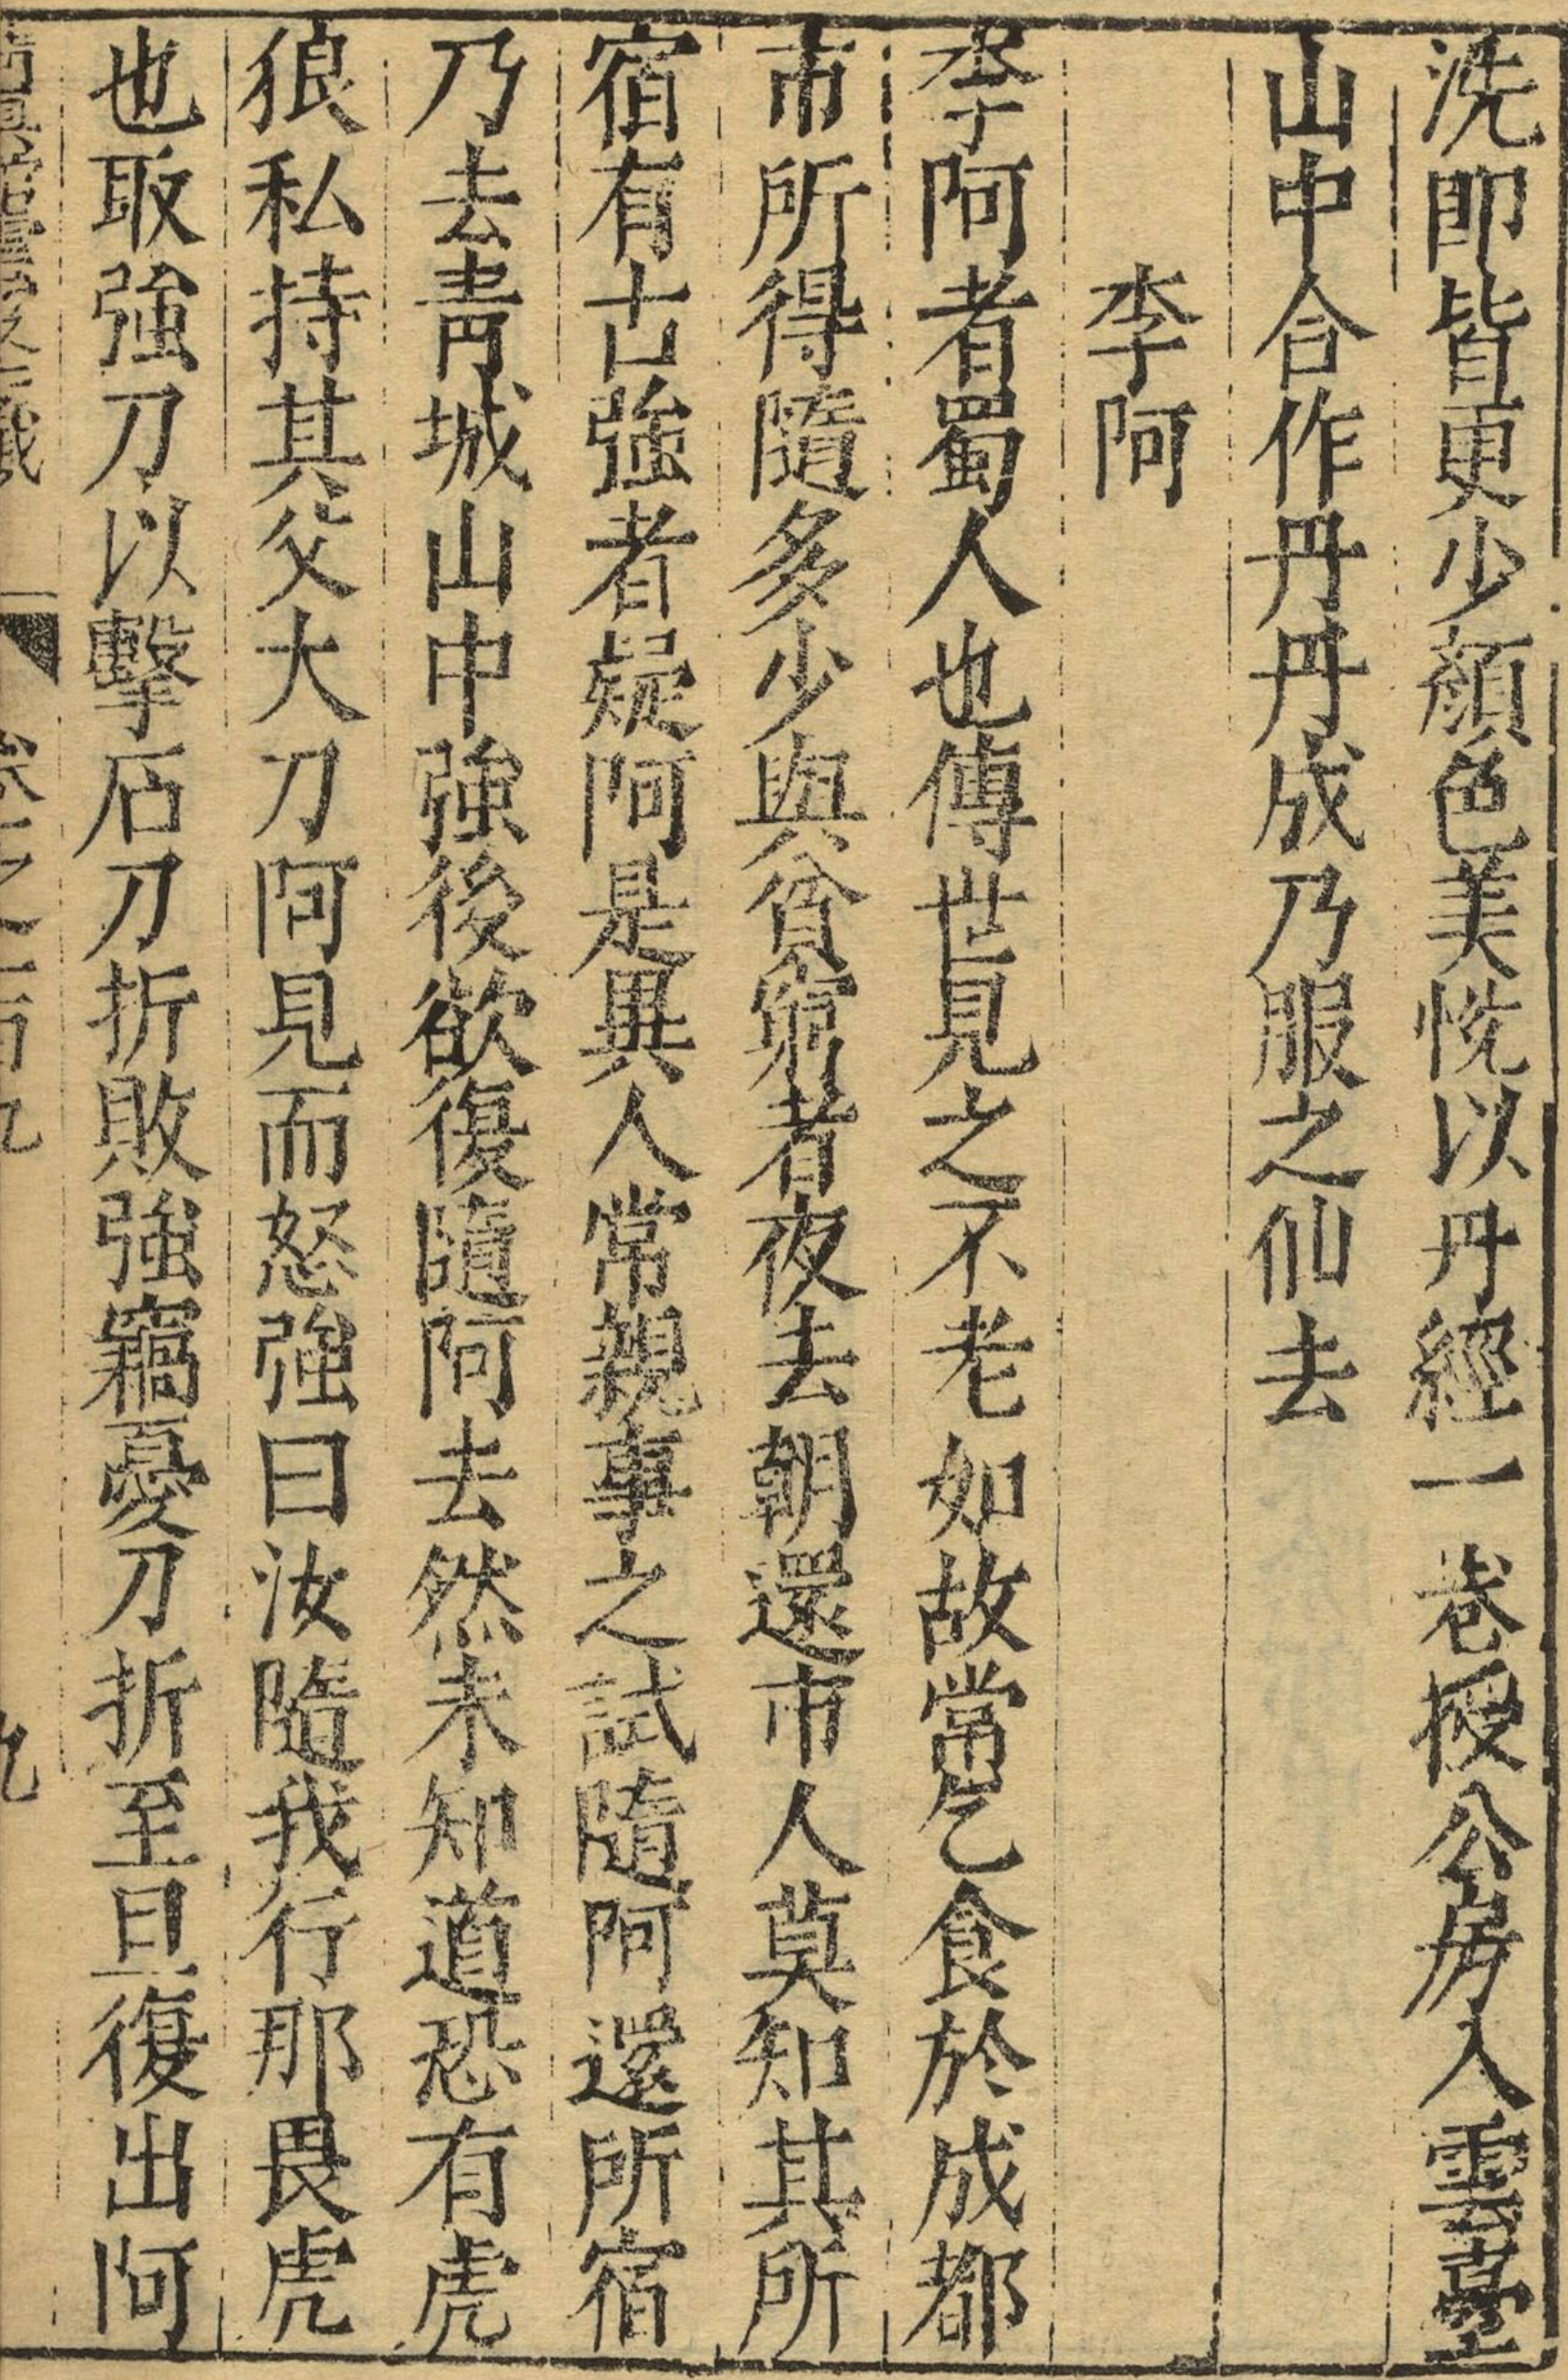 洗即皆更少顏色美悅以丹經一卷授公房入雲臺
山中合作丹丹成乃服之仙去
李阿
李阿者蜀人也傳世見之不老如故常乞食於成都
市所得隨多少與貧窮者夜去朝還市人莫知其所
宿有古強者疑阿是異人常親事之試隨阿還所宿
乃去青城山中強後欲復隨阿去然未知道恐有虎
狼私持其父大刀阿見而怒強曰汝隨我行那畏虎
也取強刀以擊石刀折敗強竊憂刀折至旦復出阿
九